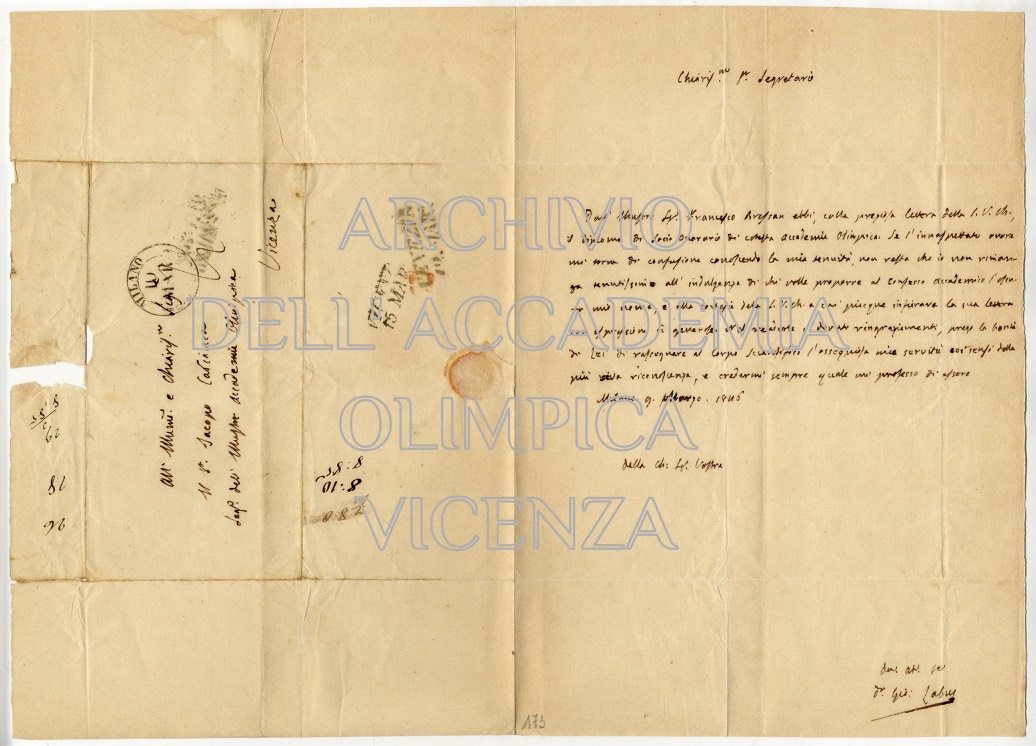 Chiariss.mo Sr. Segretario
Dall' Illustre Sr. Francesco Bressan ebbi, colla pregiata lettera della S. V. Ch.,
il diploma di Socio Onorario di cotesta Accademia Olimpica. Se l'innaspettato onore
mi torna di confusione conoscendo la mia tenuità non resta che io non riman-
ga tenutissimo all' indulgenza di chi volle proporre al consesso accademico l'oscu-
ro mio nome, e alla cortesia della S. V. Ch. a cui piacque inspirare la sua lettera
espressioni sì generose. Nel rendere i dovuti ringraziamenti, prego la bontà
di Lei di rassegnare al Corpo Scientifico l'ossequiosa mia servitù coi sensi della
più viva riconoscenza, e credermi sempre quale mi professo di essere
Milano 9. Marzo. 1846
Della Ch. Sr. Vostra
Dr. Gio: Labus
173
All' e Chiariss.mo
Il Sr. Jacopo
Segr.o dell' Illustre Accademia Olimpica
Vicenza
MILANO
MAR
VENEZIA
MAR
15 MAR
8:10
18
26
ARCHIVIO
DELL'ACCADEMIA
OLIMPICA
VICENZA